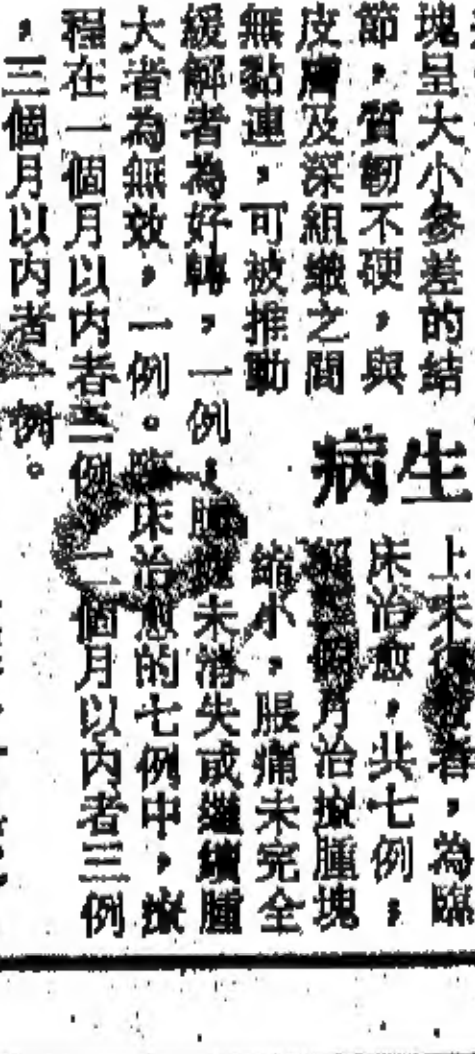 塊呈大小參差的結
節，質韌不硬，與
皮膚及深組織之間
無黏連，可被推動
生病
上未者，為臨
床治愈，共七例，
月治療腫塊
縮小，脹痛未完全
緩解者為好轉，一例；腫塊未消失或繼續腫
大者為無效，一例。臨床治愈的七例中，療
程在一個月以內者三例二個月以內者三例
，三個月以內者一例。